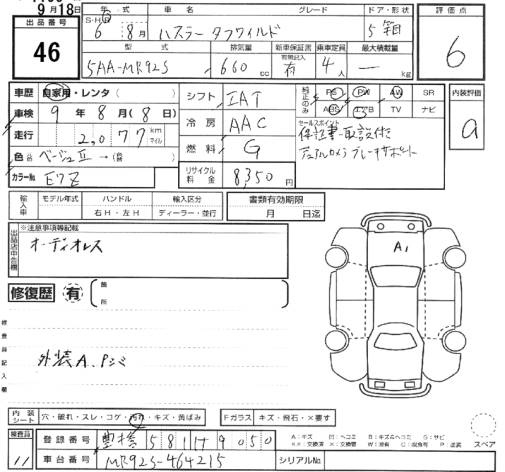 9月18日
出品番号
46
年 式 車 名 グレード ドア・形状
S・H・R 6年 8月 ハスラー タフワイルド 5 箱
型 式 排気量 新車保証書 乗車定員 最大積載量
5AA-MR92S 660 cc 有 4人 — kg
評価点
6
内装評価
a
車歴 自家用・レンタ( )
車検 9年 8月(8日)
走行 2,077 km マイル
色 ベージュⅡ →(替 )
カラーNo. E7Z
シフト IAT
冷房 AAC
燃料 G
リサイクル料金 8,350円
純正のみ PS PW AW SR
ABS エアB TV ナビ
セールスポイント
保証書・取説付
デュアルカメラブレーキサポート
輸入車 モデル年式 ハンドル 輸入区分
右H・左H ディーラー・並行
書類有効期限
月 日迄
出品店申告欄
※注意事項等記載
オーディオレス
修復歴 有
箇所
A1
検査員記入欄
外装A.Pシミ
内装シート 穴・破れ・スレ・コゲ・汚れ・キズ・黄ばみ
Fガラス キズ・飛石・×要す
検査員
11
登録番号 豊橋 581 け 9050
車台番号 MR92S-464215
シリアルNo.
A:キズ U:ヘコミ B:キズ&ヘコミ S:サビ
××:交換済 X:交換 W:波有 C:腐食 P:塗装
スペア